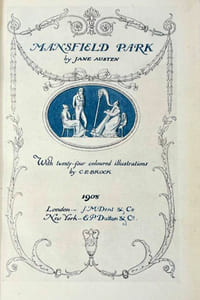 MANSFIELD PARK
by JANE AUSTEN
With twenty-four coloured illustrations
by C.E. BROCK
1908
London — J.M. Dent & Co
New York — E.P. Dutton & Co